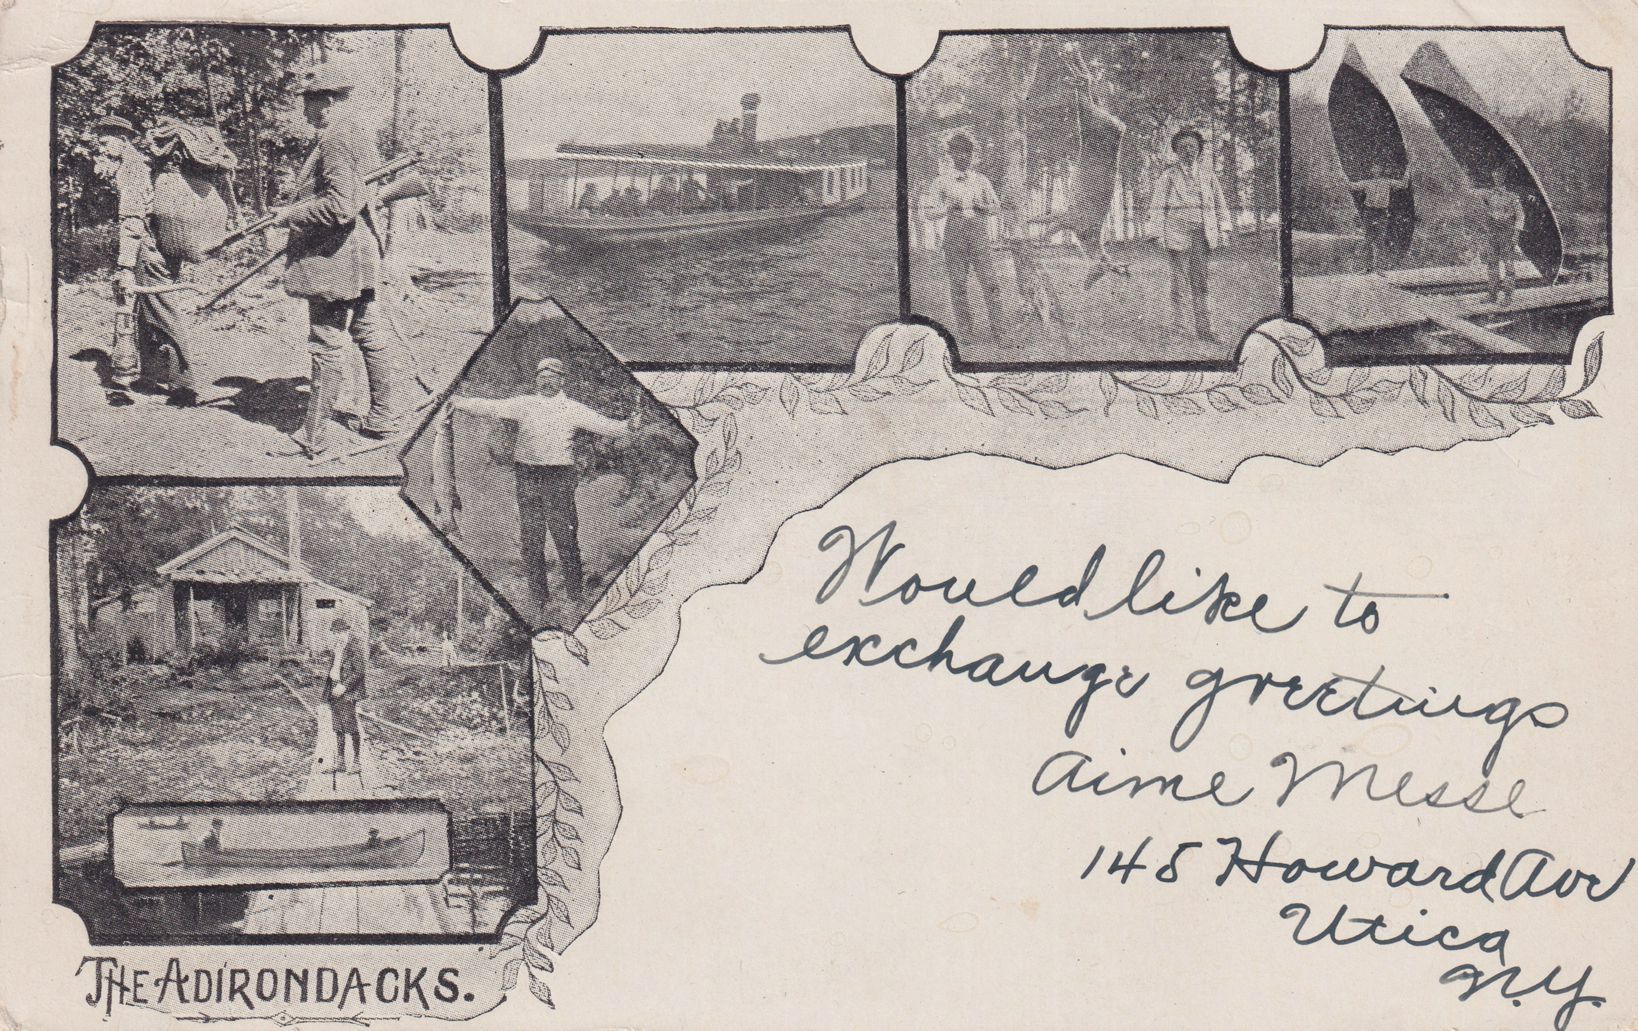 Would like to
exchange greetings
Aime Messe
145 Howard Ave
Utica
N.Y.
THE ADIRONDACKS.